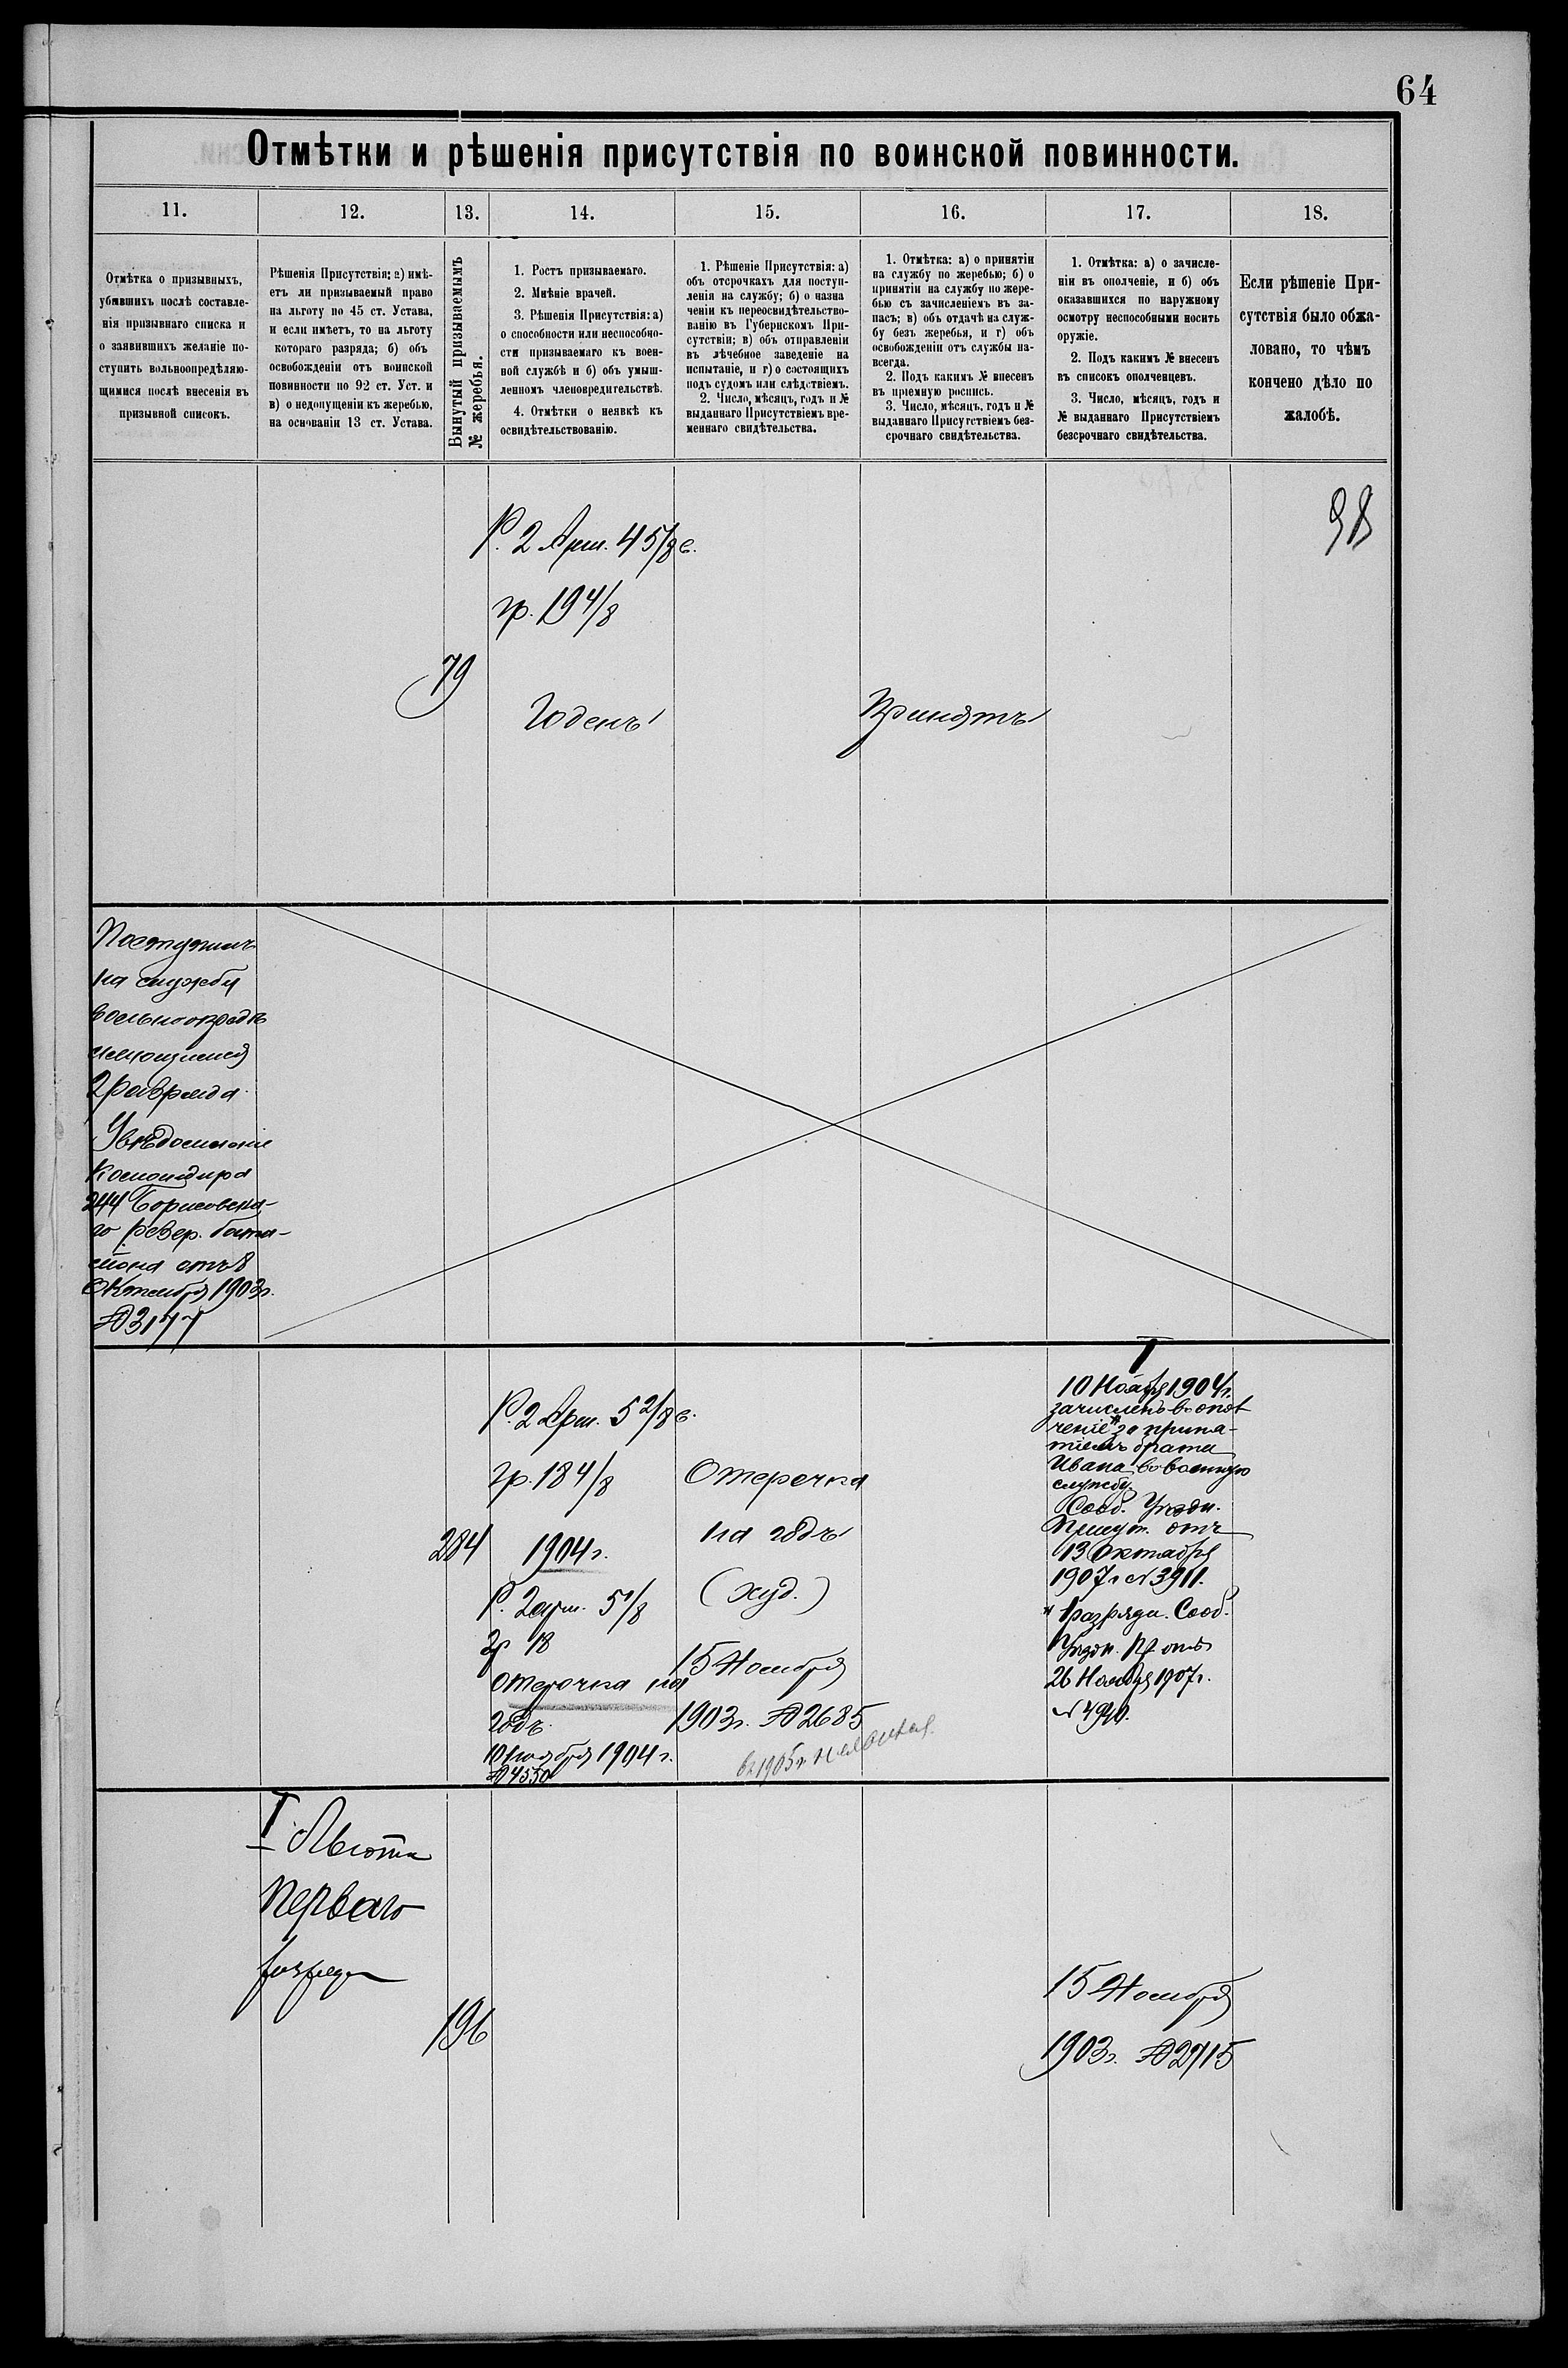 64
Отмѣтки и рѣшенія присутствія по воинской повинности.
11.
12.
13.
14.
15.
16.
17.
18.
Отмѣтка о призывныхъ,
убывшихъ послѣ составле-
нія призывнаго списка и
о заявившихъ желаніе по-
ступить вольноопредѣляю-
щимися послѣ внесенія въ
призывной списокъ.
Рѣшенія Присутствія: а) имѣ-
етъ ли призываемый право
на льготу по 45 ст. Устава,
и если имѣетъ, то на льготу
котораго разряда; б) объ
освобожденіи отъ воинской
повинности по 92 ст. Уст. и
в) о недопущеніи къ жеребью,
на основаніи 13 ст. Устава.
Вынутый призываемымъ
№ жеребья.
1. Ростъ призываемаго.
2. Мнѣніе врачей.
3. Рѣшенія Присутствія: а)
о способности или неспособно-
сти призываемаго къ воен-
ной службѣ и б) объ умыш-
ленномъ членовредительствѣ.
4. Отмѣтки о неявкѣ къ
освидѣтельствованію.
1. Рѣшеніе Присутствія: а)
объ отсрочкахъ для поступ-
ленія на службу; б) о назна
ченіи къ переосвидѣтельство-
ванію въ Губернскомъ При-
сутствіи; в) объ отправленіи
въ лѣчебное заведеніе на
испытаніе, и г) о состоящихъ
подъ судомъ или слѣдствіемъ.
2. Число, мѣсяцъ, годъ и №
выданнаго Присутствіемъ вре-
меннаго свидѣтельства.
1. Отмѣтка: а) о принятіи
на службу по жеребью; б) о
принятіи на службу по жере-
бью съ зачисленіемъ въ за-
пасъ; в) объ отдачѣ на служ-
бу безъ жеребья, и г) объ
освобожденіи отъ службы на-
всегда.
2. Подъ какимъ № внесенъ
въ пріемную роспись.
3. Число, мѣсяцъ, годъ и №
выданнаго Присутствіемъ без-
срочнаго свидѣтельства.
1. Отмѣтка: а) о зачисле-
ніи въ ополченіе, и б) объ
оказавшихся по наружному
осмотру неспособными носить
оружіе.
2. Подъ какимъ № внесенъ
въ списокъ ополченцевъ.
3. Число, мѣсяцъ, годъ и
№ выданнаго Присутствіемъ
безсрочнаго свидѣтельства.
Если рѣшеніе При-
сутствія было обжа-
ловано, то чѣмъ
кончено дѣло по
жалобѣ.
79
Р. 2 Арш. 4 5/8 в.
гр. 19 4/8
Годенъ
Принятъ
98
Поступилъ
на службу
вольноопредѣ
ляющимся
2 разряда
Увѣдомленіе
Командира
244 Борисовска-
го резер. бата-
ліона отъ 8
Октября 1903г.
№ 3177
284
Р. 2 Арш. 5 2/8 в.
гр. 18 4/8
1904 г.
Р. 2 арш. 5 1/8
гр 18
отсрочка на
годъ
10 ноября 1904 г.
№ 4550
Отсрочка
на годъ
(худ.)
15 Ноября
1903г. № 2685
въ 1905 г.
10 Ноября 1904 г.
зачисленъ въ опол
ченіе* за приня-
тіемъ брата
Ивана въ военную
службу.
Сооб. Уѣздн.
Присут. отъ
13 Октября
1907 г № 3911.
* 1 разряда. Сооб.
Уѣздн. Пр отъ
26 Ноября 1907 г.
№ 4940.
I Льгота
перваго
разряда
196
15 Ноября
1903г. № 2715